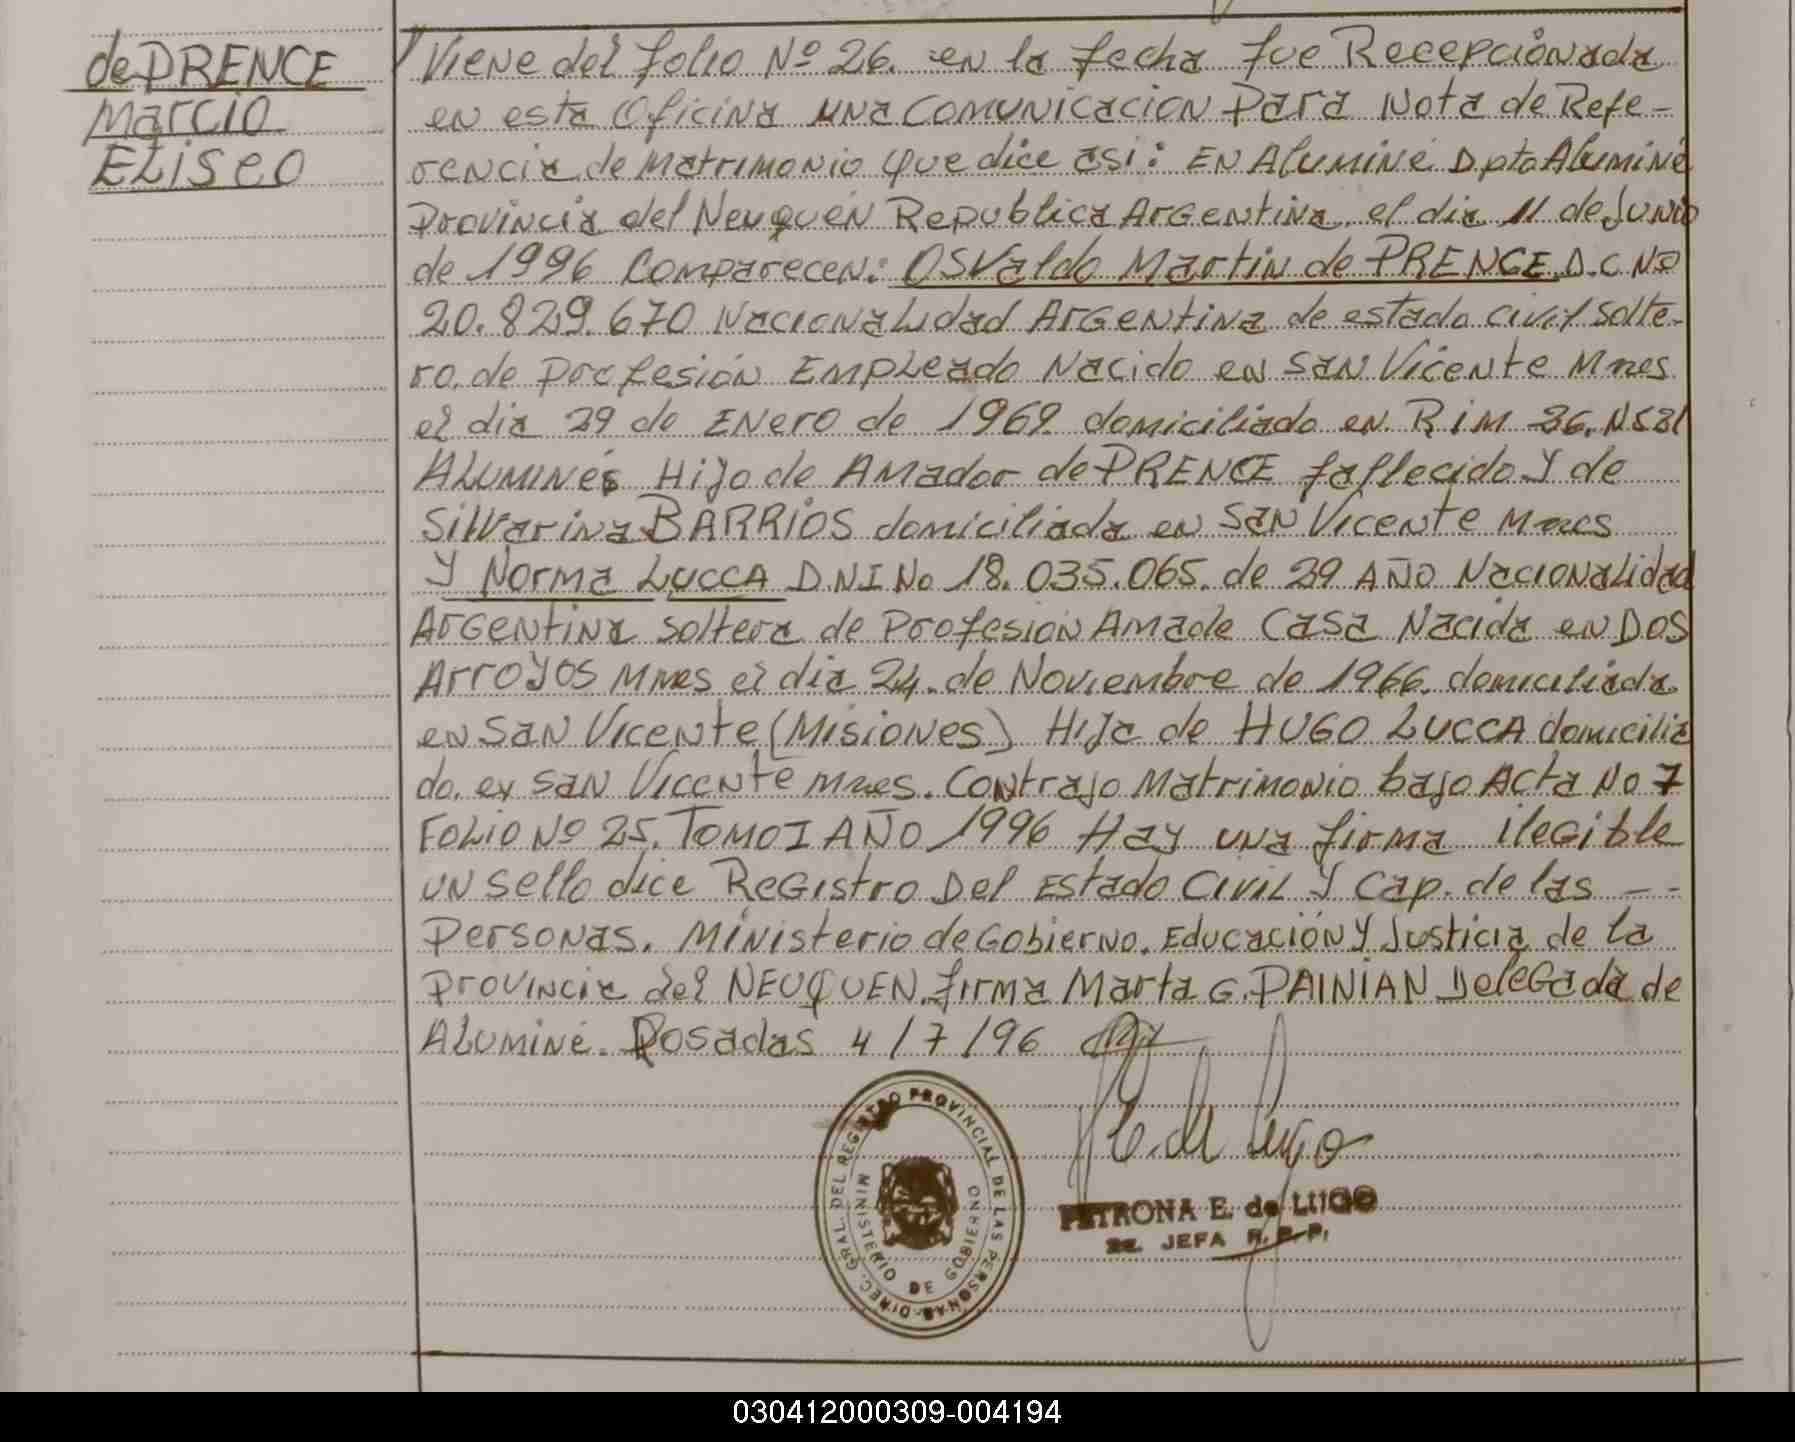 de PRENCE
Marcio
ELiseo
Viene del folio Nº 26. en la fecha fue Recepcionada
en esta Oficina una Comunicacion Para Nota de Refe-
rencia de Matrimonio que dice asi: EN Aluminé Dpto Aluminé
Provincia del Neuquén Republica Argentina el dia 11 de Junio
de 1996 Comparecen: OSValdo Martin de PRENCE D.C Nº
20.829.670 Nacionalidad Argentina de estado civil Solte-
ro. de Profesión Empleado Nacido en San Vicente Mnes
el dia 29 de Enero de 1969 domiciliado en RIM 26. N531
Aluminé Hijo de Amador de PRENCE fallecido Y de
Silvarina BARRIOS domiciliada en San Vicente Mnes
Y Norma LUCCA D.N.I No 18.035.065. de 29 AÑO Nacionalidad
Argentina Soltera de Profesión Ama de Casa Nacida en DOS
Arroyos Mnes el dia 24. de Noviembre de 1966. domiciliada
en San Vicente (Misiones) Hija de HUGO LUCCA domicilia
do. en San Vicente Mnes. Contrajo Matrimonio bajo Acta No 7
FOLIO Nº 25. TOMO I AÑO 1996 Hay una firma ilegible
un sello dice Registro Del Estado Civil Y Cap. de las - -
Personas. Ministerio de Gobierno. Educación Y Justicia de la
Provincia del NEUQUEN. firma Marta G. PAINIAN Delegada de
Aluminé. Posadas 4/7/96
DIREC. GRAL. DEL REGISTRO PROVINCIAL DE LAS PERSONAS
MINISTERIO DE GOBIERNO
PETRONA E. de LUGO
JEFA R. P. P.
030412000309-004194